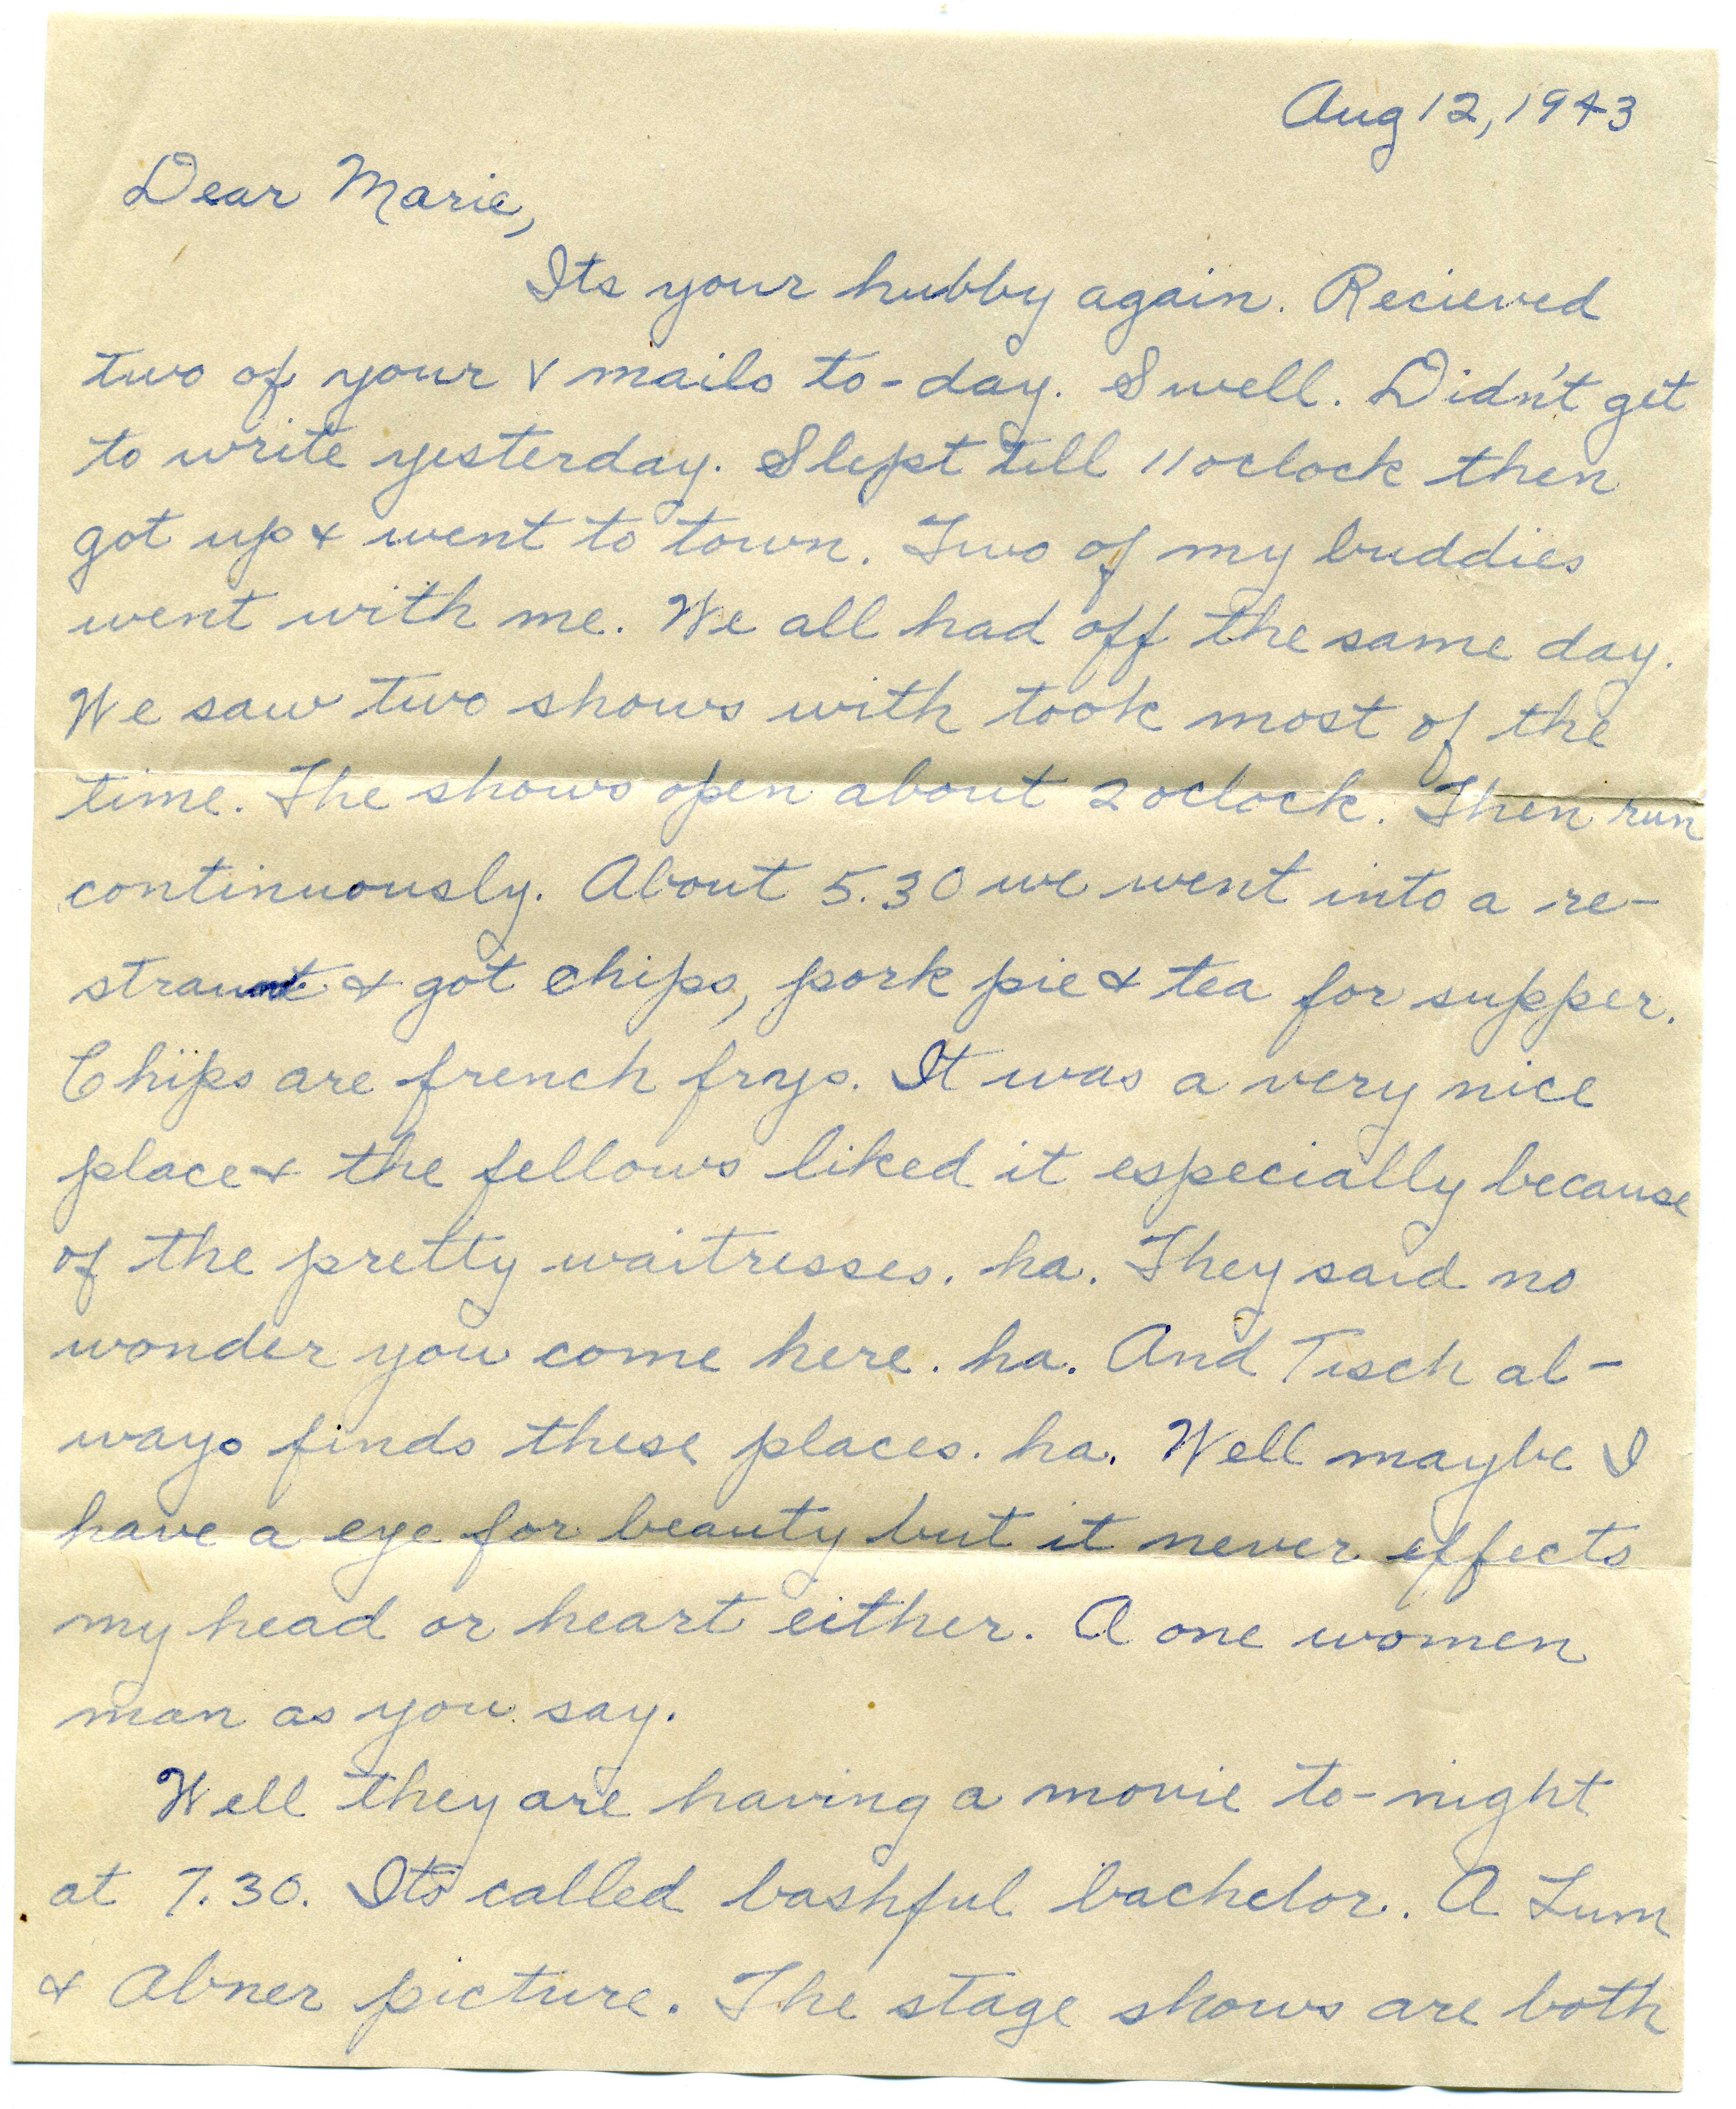 Aug 12, 1943
Dear Marie,
Its your hubby again. Recieved
two of your V mails to-day. Swell. Didn't get
to write yesterday. Slept till 11 oclock then
got up & went to town. Two of my buddies
went with me. We all had off the same day.
We saw two shows with took most of the
time. The shows open about 2 oclock. Then run
continuously. About 5.30 we went into a re-
straunt & got chips, pork pie & tea for supper.
Chips are french frys. It was a very nice
place & the fellows liked it especially because
of the pretty waitresses. ha. They said no
wonder you come here. ha. And Tisch al-
ways finds these places. ha. Well maybe I
have a eye for beauty but it never effects
my head or heart either. A one women
man as you say.
Well they are having a movie to-night
at 7.30. Its called bashful bachelor. A Lum
& Abner picture. The stage shows are both